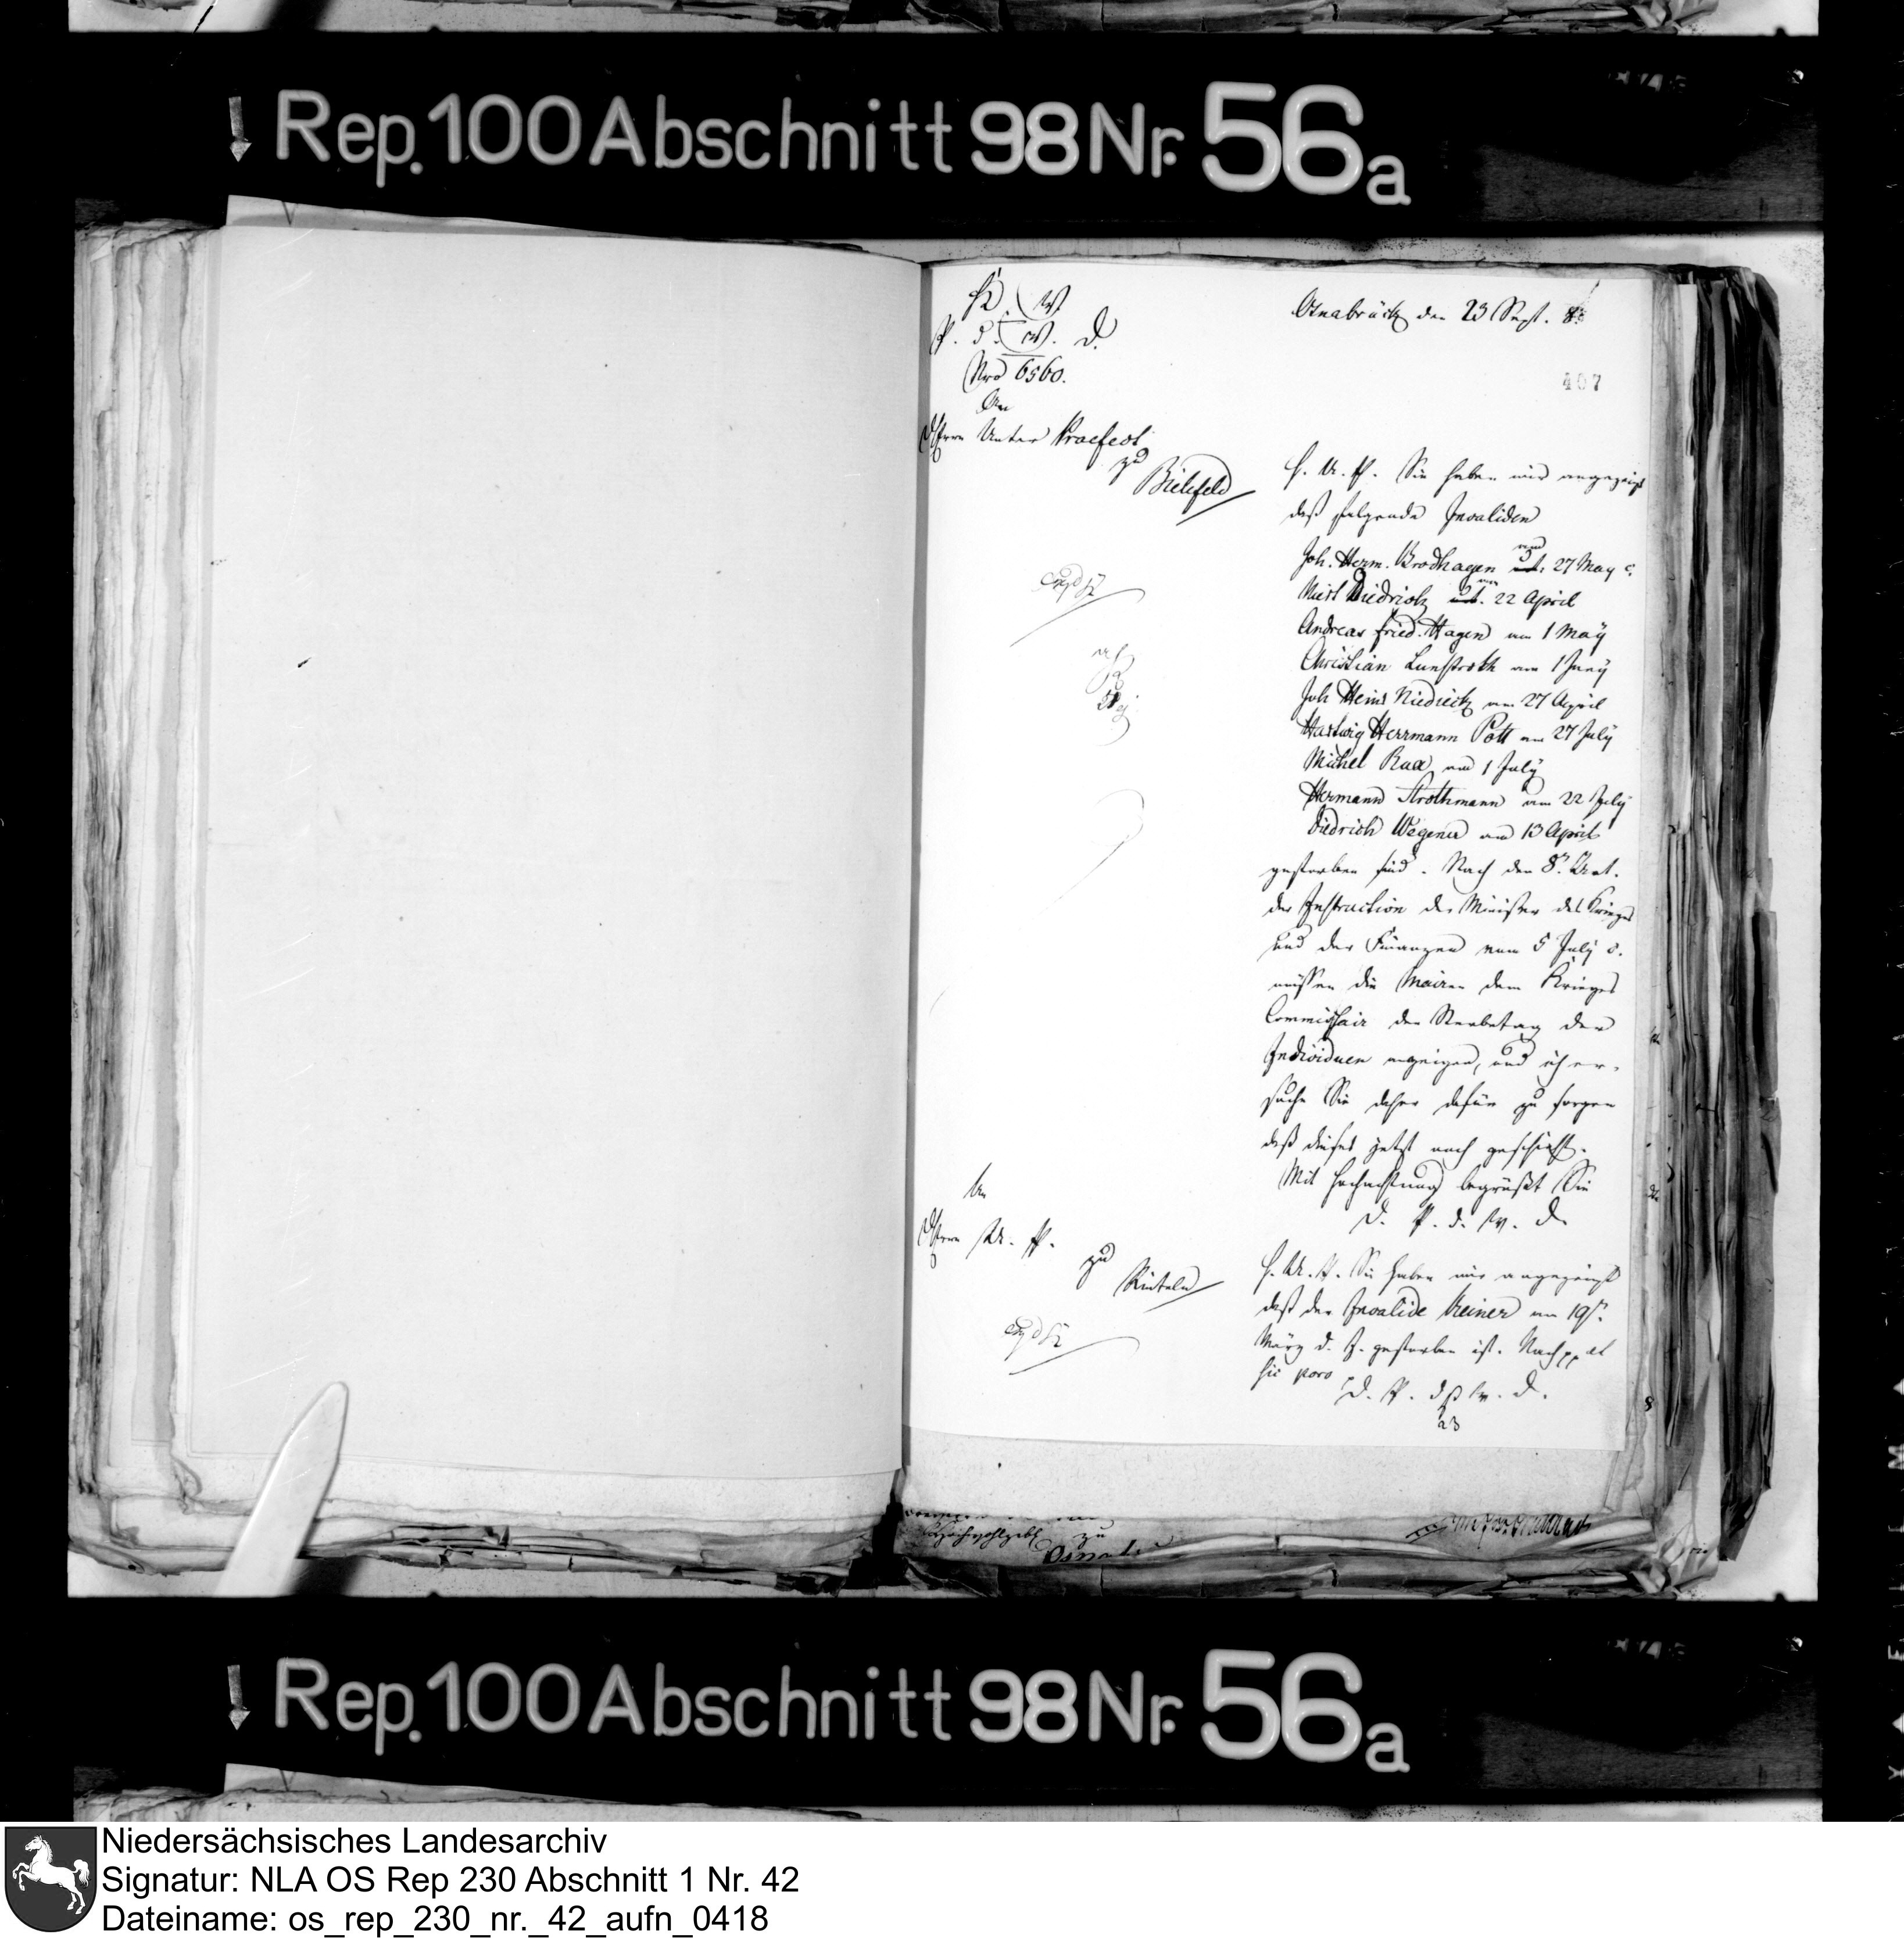 Rep. 100 Abschnitt 98 Nr. 56a
Osnabrück den 23 Sept. 8
407
P. d. W. D.
Nro 6560.
An
Herrn Unter Praefect
zu
Bielefeld
H. U. P. Sie haben mir angezeigt
daß folgende Invaliden
Joh. Herm. Brodhagen am 27 May c.
Diedrich am 22 April
Andreas Fried. Hagen am 1 May
Christian Lunstroth am 1 Juny
Joh Heinr Niedieck am 27 April
Hartwig Herrmann Pott am 27 July
Michel Rax am 1 July
Hermann Strothmann am 22 July
Diedrich Wegener am 13 April
gestorben sind. Nach den 8n Art.
der Instruction der Minister des Krieges
und der Finanzen vom 5 July c.
müssen die Mairen dem Krieges
Commissair den Sterbetag der
Individuen anzeigen, und ich er-
suche Sie daher dafür zu sorgen
daß dieses jetzt noch geschieht.
Mit Hochachtung begrüßt Sie
D. P. d. W. D.
An
Herrn U. P.
zu
Rinteln
H. U. P. Sie haben mir angezeigt
daß der Invalide Kreiner am 19n
März d. J. gestorben ist. Nach pp et
sic porro
D. P. d W. D.
23
Hochwohlgeb zu
Rep. 100 Abschnitt 98 Nr. 56a
Niedersächsisches Landesarchiv
Signatur: NLA OS Rep 230 Abschnitt 1 Nr. 42
Dateiname: os_rep_230_nr._42_aufn_0418